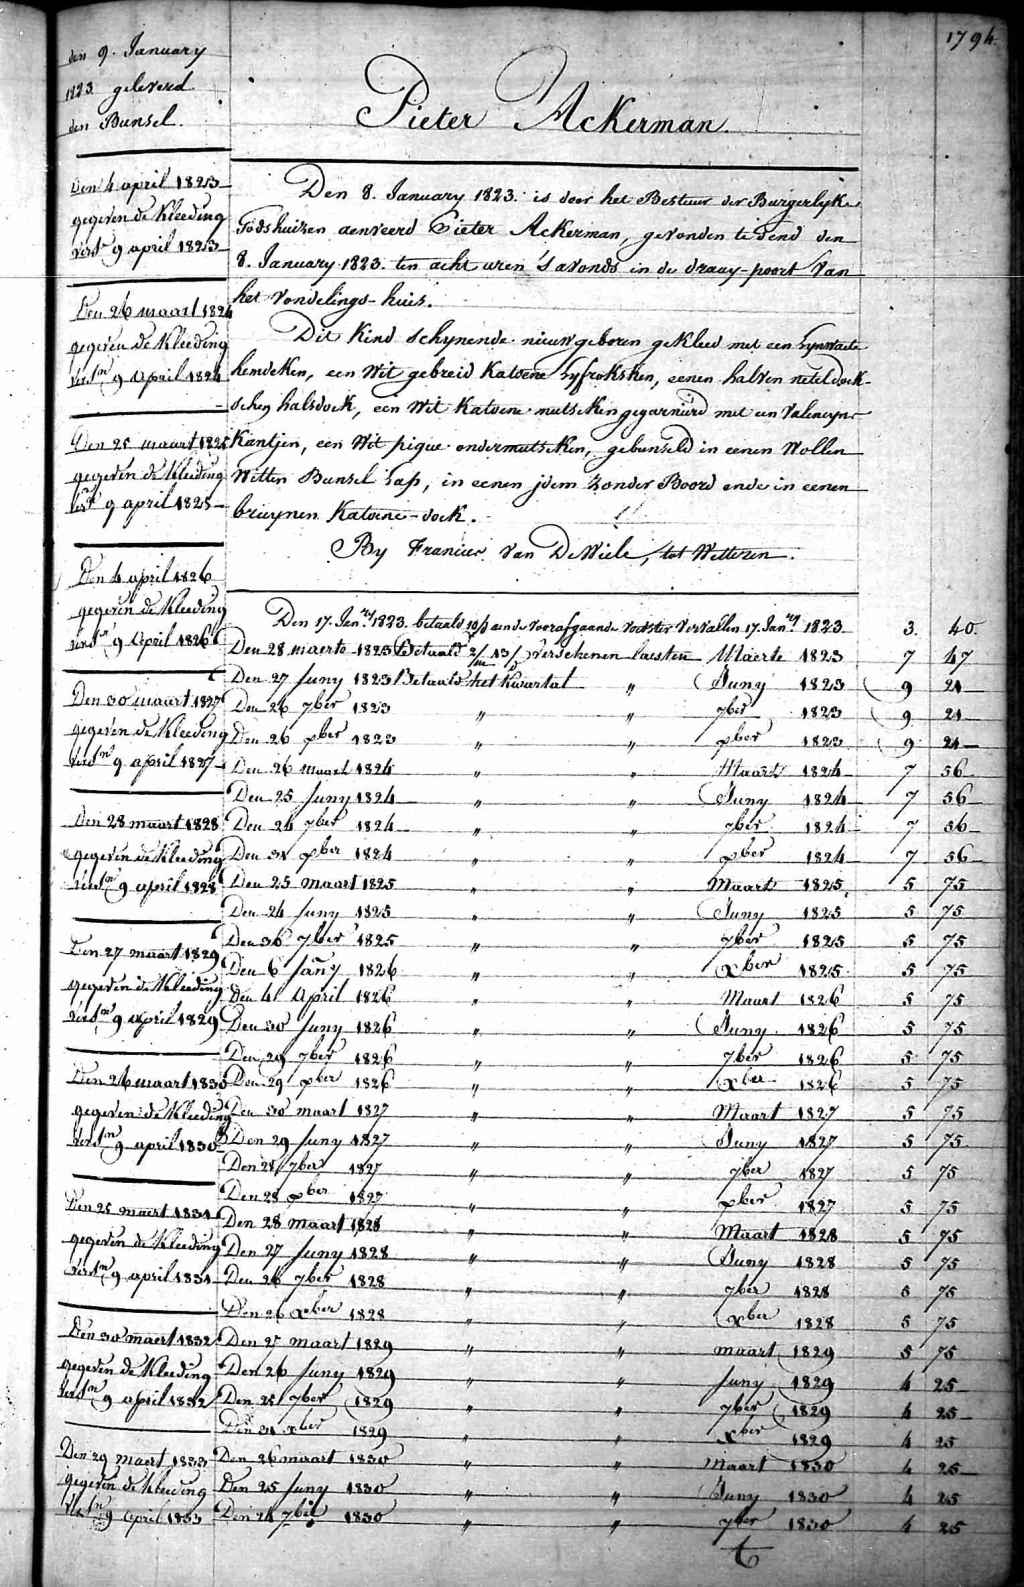 1794.
Pieter Ackerman.
den 9. January
1823 geleverd
den Bunsel.
Den 4 april 1823
gegeven de Kleeding
9 april 1823
Den 26 maart 1824
gegeven de Kleeding
9 April 1824
Den 25 maart 1825
gegeven de Kleeding
9 april 1825
Den 4 april 1826
gegeven de Kleeding
9 April 1826
Den 30 maart 1827
gegeven de Kleeding
9 april 1827
Den 28 maart 1828
gegeven de Kleeding
9 april 1828
Den 27 maart 1829
gegeven de Kleeding
9 april 1829
Den 26 maart 1830
gegeven de Kleeding
9 april 1830
Den 25 maert 1831
gegeven de Kleeding
9 april 1831
Den 30 maert 1832
gegeven de Kleeding
9 april 1832
Den 29 maert 1833
gegeven de Kleeding
9 April 1833
Den 8. January 1823. is door het Bestuur der Burgerlyke
Godshuizen aenveerd Pieter Ackerman, gevonden te Gend den
8. January 1823. ten acht uren 's avonds in de draay-poort van
het vondelings-huis.
Dit Kind schynende nieuwgeboren gekleed met een Lynwaete
hemdeken, een Wit gebreid Katoene Lyfroksken, eenen halven neteldoek-
schen halsdoek, een Wit Katoene mutseken gegarniird met een Valencyn-
Kantjen, een Wit pique ondermutseken, gebunseld in eenen Wollen
Witten Bunsel Lap, in eenen jdem Zonder Boord ende in eenen
bruynen Katoene-doek.
By Francies Van De Wiele, tot Wetteren.
Den 17. Jan.ry 1823. betaeld aende voorafgaande voedster Vervallen 17. Jan.ry 1823 3. 40.
Den 28 maerte 1823 Betaeld verschenen laesten Maerte 1823 7 47
Den 27 Juny 1823 Betaeld het Kwartal " Juny 1823 9 21
Den 26 7ber 1823 " " 7ber 1823 9 21
Den 26 xber 1823 " " xber 1823 9 21
Den 26 maart 1824 " " Maart 1824 7 56
Den 25 Juny 1824 " " Juny 1824 7 56
Den 24 7ber 1824 " " 7ber 1824 7 56
Den 31 xber 1824 " " xber 1824 7 56
Den 25 maart 1825 " " Maart 1825 5 75
Den 24 Juny 1825 " " Juny 1825 5 75
Den 30 7ber 1825 " " 7ber 1825 5 75
Den 6 Janny 1826 " " xber 1825 5 75
Den 4 April 1826 " " Maart 1826 5 75
Den 30 Juny 1826 " " Juny 1826 5 75
Den 29 7ber 1826 " " 7ber 1826 5 75
Den 29 xber 1826 " " xber 1826 5 75
Den 30 maart 1827 " " Maart 1827 5 75
Den 29 Juny 1827 " " Juny 1827 5 75
Den 28 7ber 1827 " " 7ber 1827 5 75
Den 28 xber 1827 " " xber 1827 5 75
Den 28 maart 1828 " " Maart 1828 5 75
Den 27 Juny 1828 " " Juny 1828 5 75
Den 26 7ber 1828 " " 7ber 1828 5 75
Den 26 xber 1828 " " xber 1828 5 75
Den 27 maart 1829 " " maart 1829 5 75
Den 26 Juny 1829 " " Juny 1829 4 25
Den 25 7ber 1829 " " 7ber 1829 4 25
Den 31 xber 1829 " " xber 1829 4 25
Den 26 maart 1830 " " maart 1830 4 25
Den 25 Juny 1830 " " Juny 1830 4 25
Den 24 7ber 1830 " " 7ber 1830 4 25